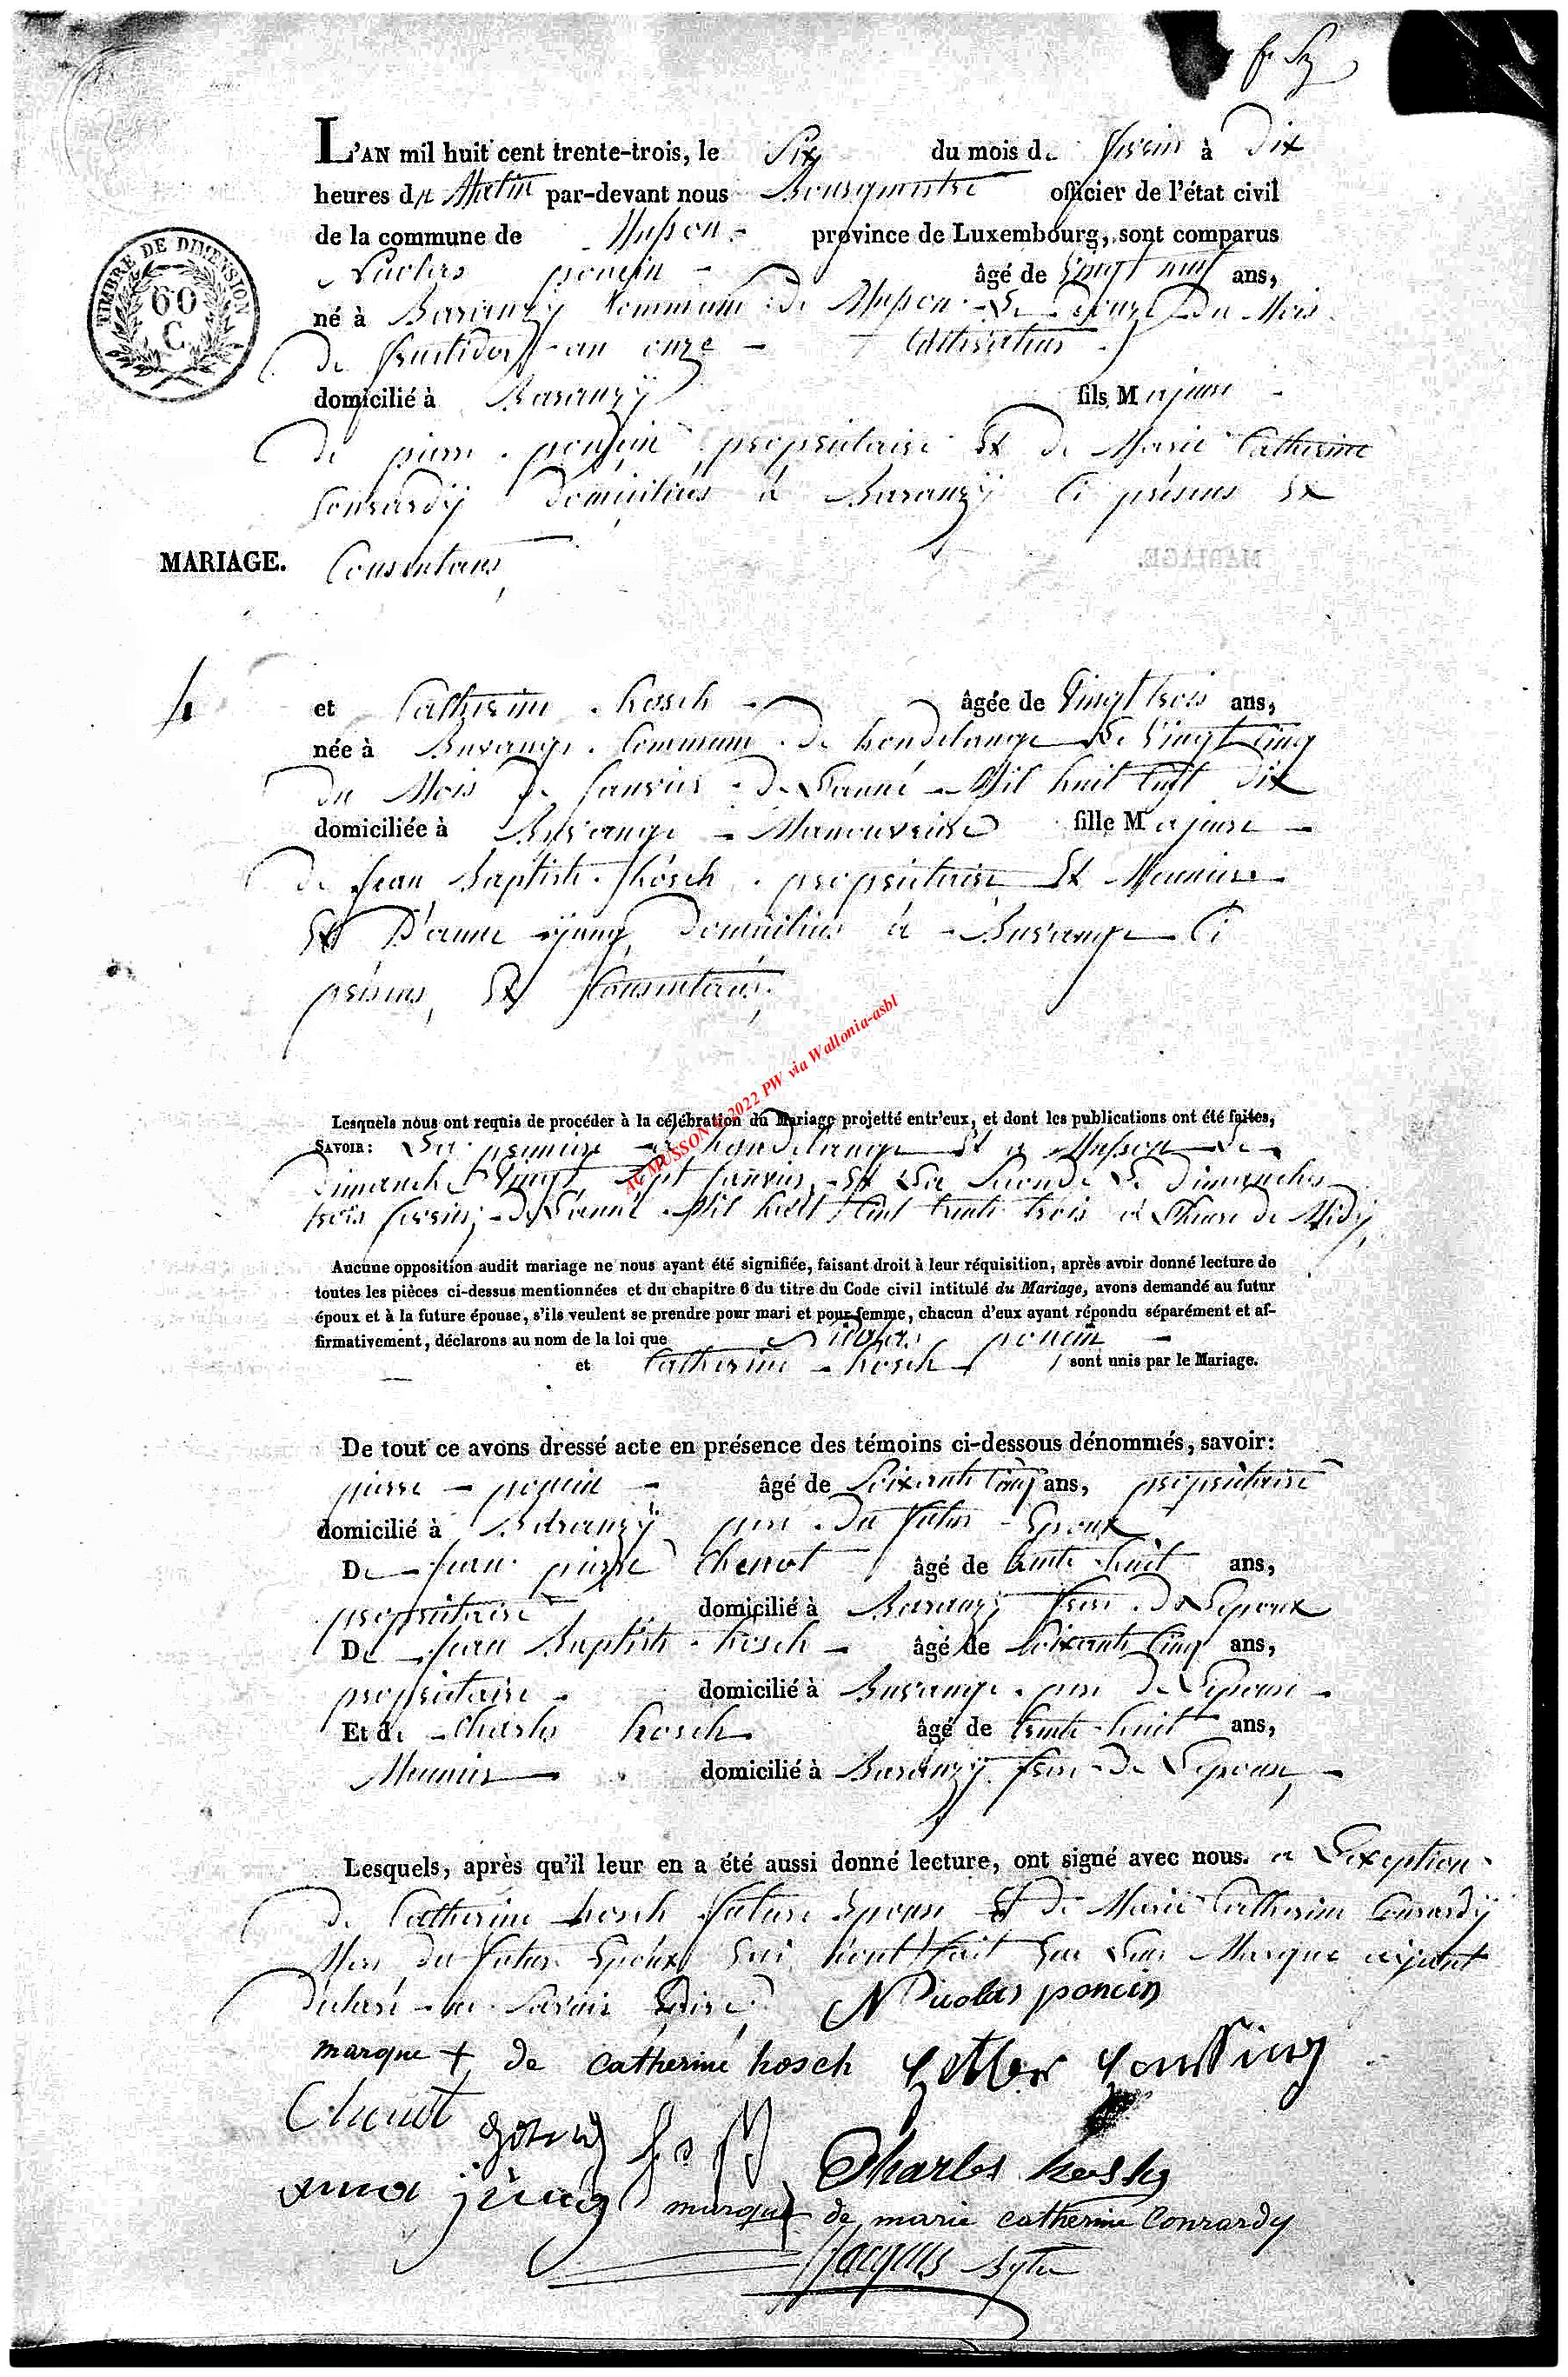 L'AN mil huit cent trente-trois, le Six du mois de fevrier à Dix
heures du Matin par-devant nous Bourgmestre officier de l'état civil
de la commune de Musson province de Luxembourg, sont comparus
Nicolas poncin âgé de Vingt neuf ans,
né à Baranzÿ Commune de Musson Le douze Du Mois
De fructidor an onze Cultivateur
domicilié à Baranzÿ fils Majeur
De pierre poncin propriétaire Et De Marie Catherine
Conrardÿ Domiciliés à Baranzÿ Ci présens Et
MARIAGE. Consentans
4
et Catherine hosch âgée de Vingt trois ans,
née à Buvange Commune De hondelange Le Vingt Cinq
Du Mois De Janvier De Lanné Mil huit Cent Dix
domiciliée à Buvange Manouvrière fille Majeure
De Jean Baptiste hosch propriétaire Et Meunier
Et D'anne ÿung Domiciliés à Buvange Ci
présens, Et Consentans,
Lesquels nous ont requis de procéder à la célébration du Mariage projetté entr'eux, et dont les publications ont été faites,
SAVOIR: La première à hondelange Et à Musson Le
Dimanche Vingt Sept Janvier Et La Seconde Le Dimanche
trois fevrier, De Lanné Mil huit Cent trente trois à Lheure De Midÿ,
AC MUSSON 2022 PW via Wallonia-asbl
Aucune opposition audit mariage ne nous ayant été signifiée, faisant droit à leur réquisition, après avoir donné lecture de
toutes les pièces ci-dessus mentionnées et du chapitre 6 du titre du Code civil intitulé du Mariage, avons demandé au futur
époux et à la future épouse, s'ils veulent se prendre pour mari et pour femme, chacun d'eux ayant répondu séparément et af-
firmativement, déclarons au nom de la loi que Nicolas poncin
et Catherine hosch sont unis par le Mariage.
De tout ce avons dressé acte en présence des témoins ci-dessous dénommés, savoir:
pierre poncin âgé de Soixante Cinq ans, propriétaire
domicilié à Baranzÿ père Du futur Epoux
De Jean pierre Chenot âgé de trente huit ans,
propriétaire domicilié à Baranzÿ frère De Lepoux
De Jean Baptiste hosch âgé de Soixante Cinq ans,
propriétaire domicilié à Buvange père De Lepouse
Et de Charles hosch âgé de trente huit ans,
Meunier domicilié à Baranzÿ frère De Lepouse,
Lesquels, après qu'il leur en a été aussi donné lecture, ont signé avec nous. a Lexception
De Catherine hosch future Epouse Et De Marie Catherine Conrardÿ
Mere Du futur Epoux qui n'ont fait que Leur Marque aÿant
Déclaré ne Savoir Ecrire. Nicolas poncin
marque + de catherine hosch
Chenot
anna jung Charles hosch
marque de marie catherine Conrardy
Jacques
TIMBRE DE DIMENSION
60
C.